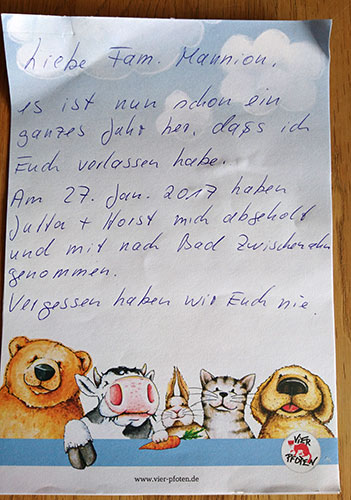 Liebe Fam. Mannion,
es ist nun schon ein
ganzes Jahr her, dass ich
Euch verlassen habe.
Am 27. Jan. 2017 haben
Jutta + Horst mich abgeholt
und mit nach Bad Zwischenahn
genommen.
Vergessen haben wir Euch nie.
VIER
PFOTEN
www.vier-pfoten.de